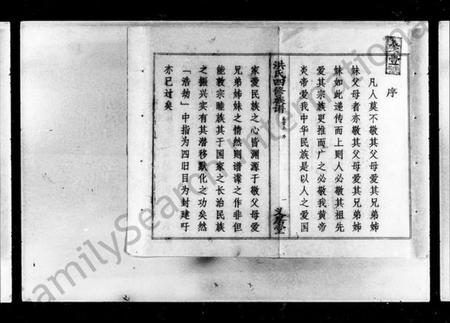 序
凡人莫不敬其父母爱其兄弟姊
妹父母者亦敬其父母爱其兄弟姊
妹如此递传而上则人必敬其祖先
爱其宗族更推而广之必敬我黄帝
炎帝爱我中华民族是以人之爱国
洪氏四修族谱
家爱民族之心皆渊源于敬父母爱
兄弟姊妹之情然则谱谍之作非但
能敦宗睦族其于国家之长治民族
之振兴实有其潜移默化之功矣然
「浩劫」中指为四旧目为封建吁
亦已过矣
FamilySearch International